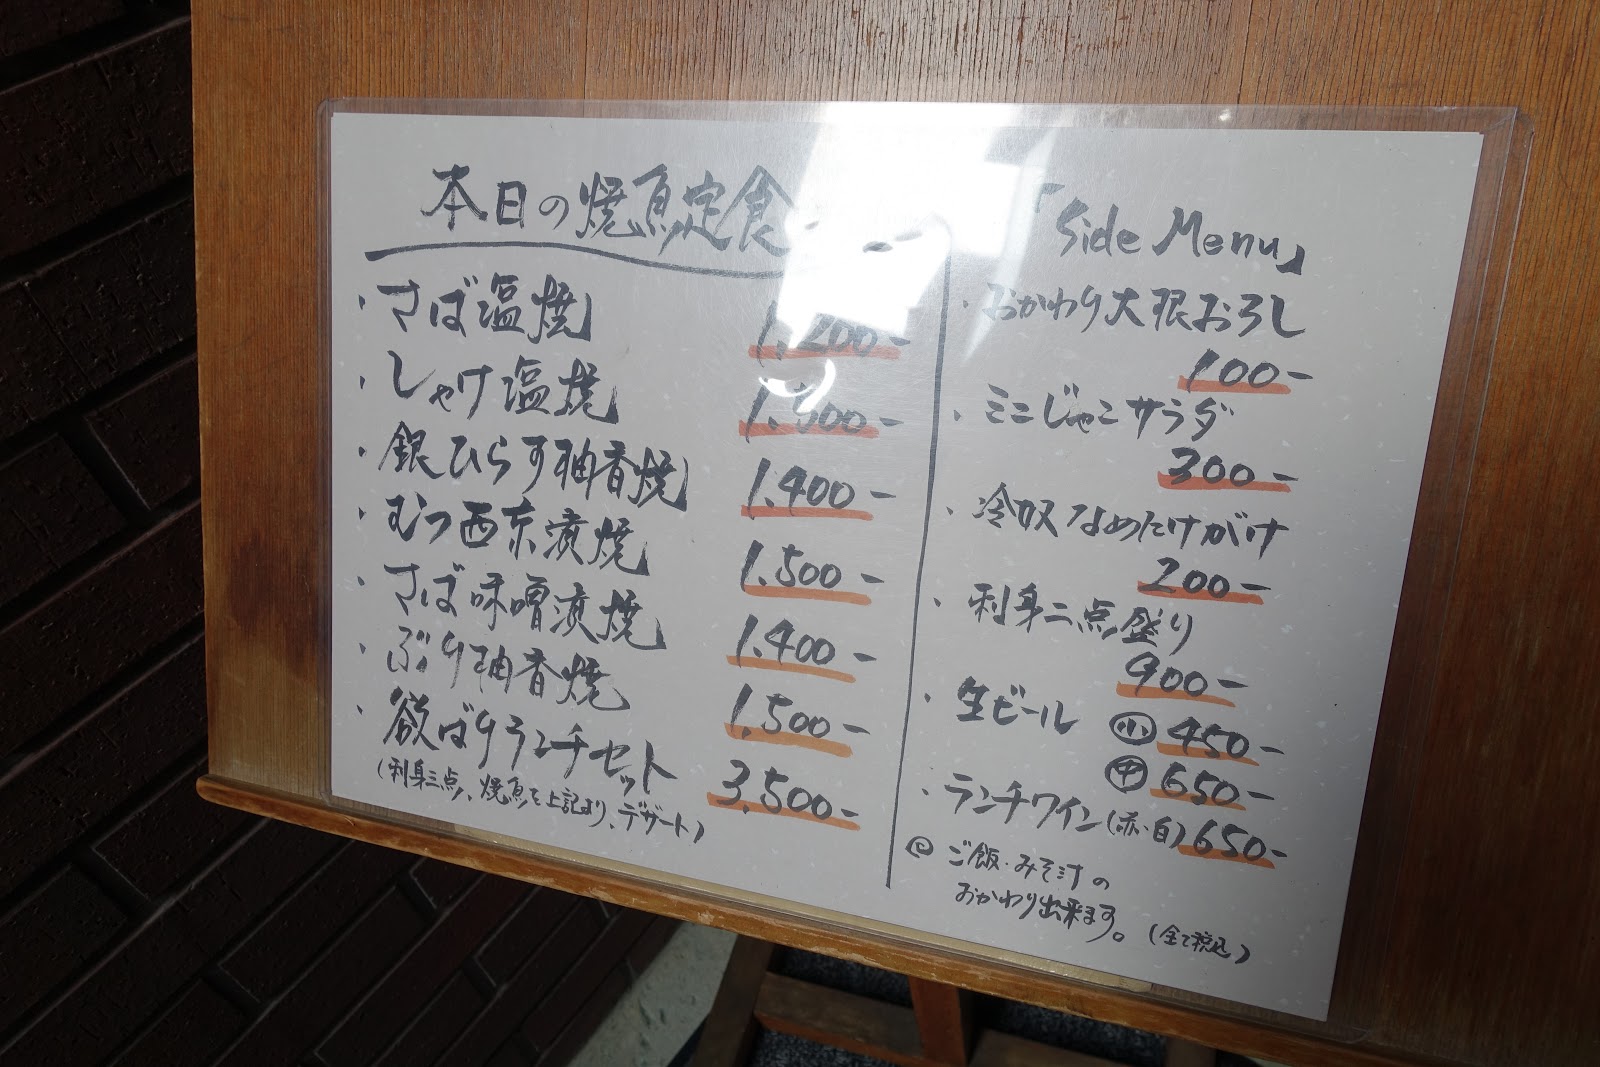 本日の焼魚定食
・さば塩焼 1.200-
・しゃけ塩焼 1.300-
・銀ひらす柚香焼 1.400-
・むつ西京漬焼 1.500-
・さば味噌漬焼 1.400-
・ぶり柚香焼 1.500-
・欲ばりランチセット 3.500-
(刺身三点、焼魚を上記より、デザート)
「Side Menu」
・おかわり大根おろし
100-
・ミニじゃこサラダ
300-
・冷奴なめたけがけ
200-
・刺身二点盛り
900-
・生ビール ㊥小 450-
㊥ 650-
・ランチワイン(赤・白) 650-
◎ ご飯・みそ汁の
おかわり出来ます。(全て税込)